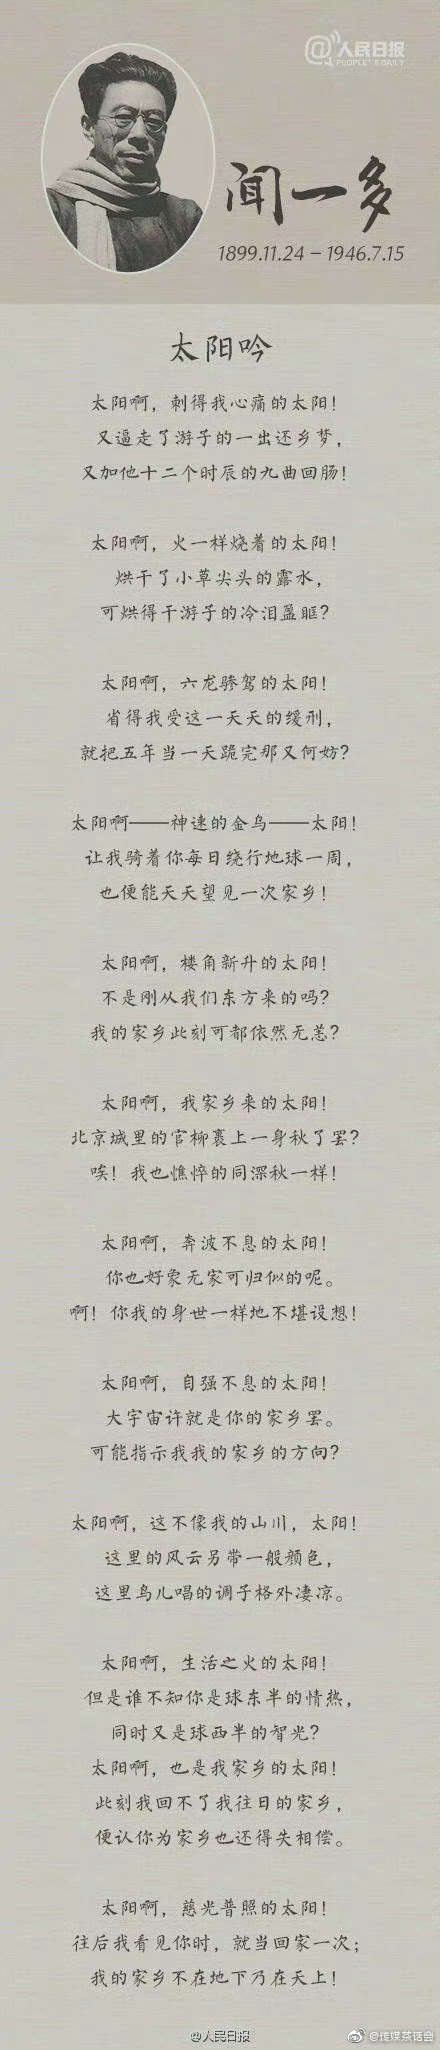 @人民日报
PEOPLE'S DAILY
闻一多
1899.11.24 – 1946.7.15
太阳吟
太阳啊，刺得我心痛的太阳！
又逼走了游子的一出还乡梦，
又加他十二个时辰的九曲回肠！
太阳啊，火一样烧着的太阳！
烘干了小草尖头的露水，
可烘得干游子的冷泪盈眶？
太阳啊，六龙骖驾的太阳！
省得我受这一天天的缓刑，
就把五年当一天跑完那又何妨？
太阳啊——神速的金乌——太阳！
让我骑着你每日绕行地球一周，
也便能天天望见一次家乡！
太阳啊，楼角新升的太阳！
不是刚从我们东方来的吗？
我的家乡此刻可都依然无恙？
太阳啊，我家乡来的太阳！
北京城里的官柳裹上一身秋了罢？
唉！我也憔悴的同深秋一样！
太阳啊，奔波不息的太阳！
你也好象无家可归似的呢。
啊！你我的身世一样地不堪设想！
太阳啊，自强不息的太阳！
大宇宙许就是你的家乡罢。
可能指示我我的家乡的方向？
太阳啊，这不像我的山川，太阳！
这里的风云另带一般颜色，
这里鸟儿唱的调子格外凄凉。
太阳啊，生活之火的太阳！
但是谁不知你是球东半的情热，
同时又是球西半的智光？
太阳啊，也是我家乡的太阳！
此刻我回不了我往日的家乡，
便认你为家乡也还得失相偿。
太阳啊，慈光普照的太阳！
往后我看见你时，就当回家一次；
我的家乡不在地下乃在天上！
@人民日报
@传媒茶话会